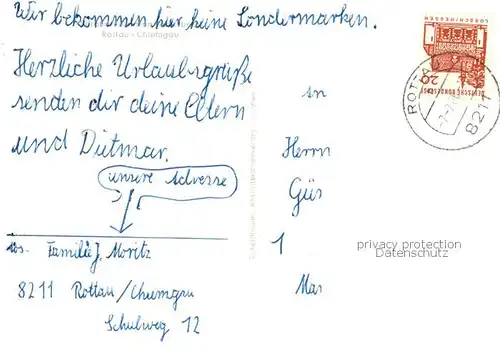 Wir bekommen hier keine Sondermarken.
Rottau - Chiemgau
Herzliche Urlaubsgrüße
senden dir deine Eltern
und Dietmar.
unsere Adresse
Familie J. Moritz
8211 Rottau/Chiemgau
Schulweg 12
An
Herrn
Gün
1
Mar
LORSCH/HESSEN
20
DEUTSCHE BUNDESPOST
ROTTA
8211
privacy protection
Datenschutz